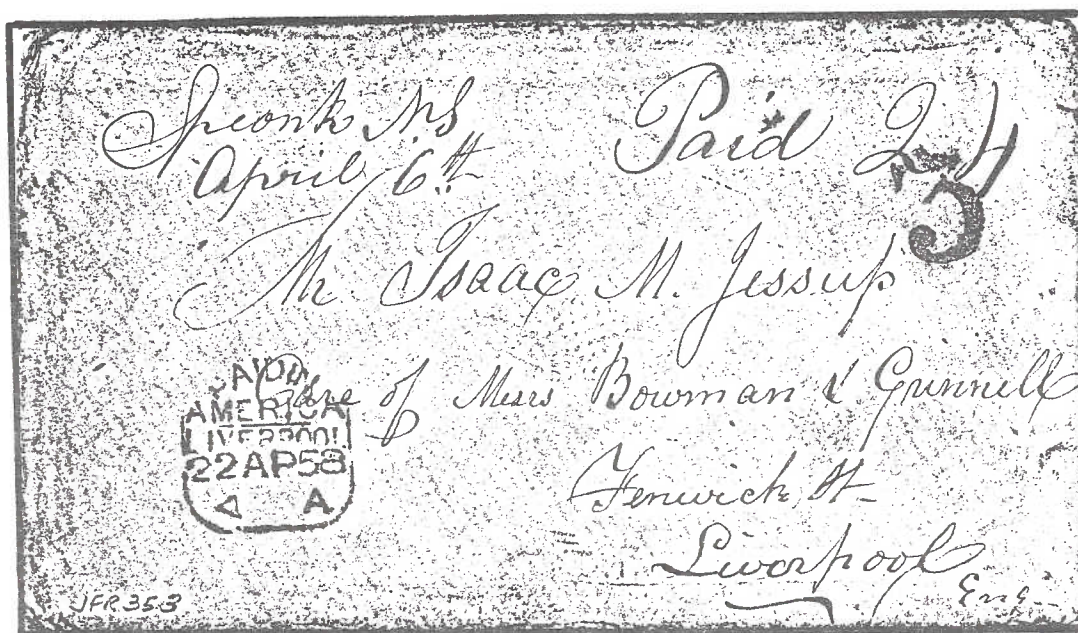 Speonk NY
April 6th
Paid 24
3
Mr Isaac M. Jessup
Care of Messrs Bowman & Grinnell
Fenwick St
Liverpool
Eng
PAID
AMERICA
LIVERPOOL
22AP58
A
JFR 353